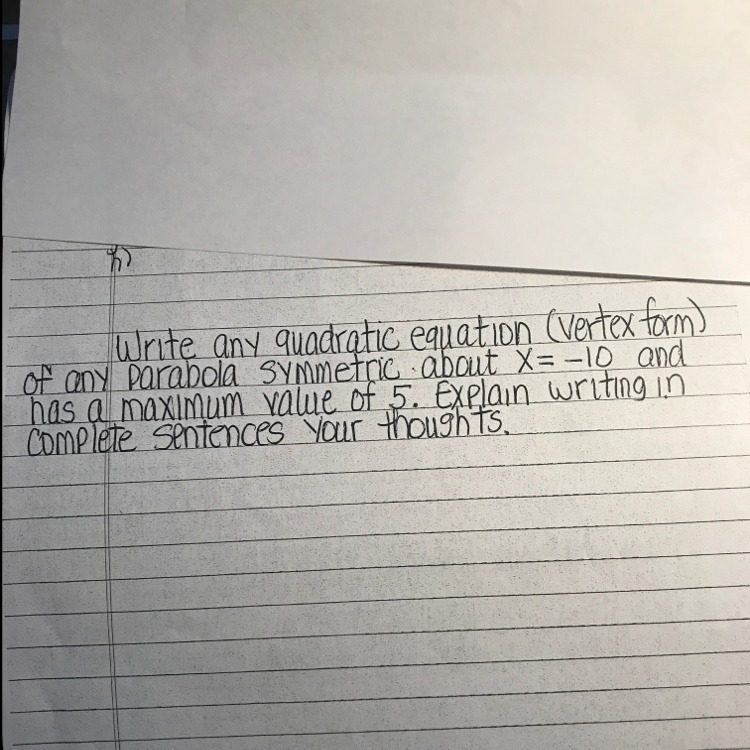 Write any quadratic equation (vertex form)
of any parabola symmetric about x = -10 and
has a maximum value of 5. Explain writing in
complete sentences your thoughts.